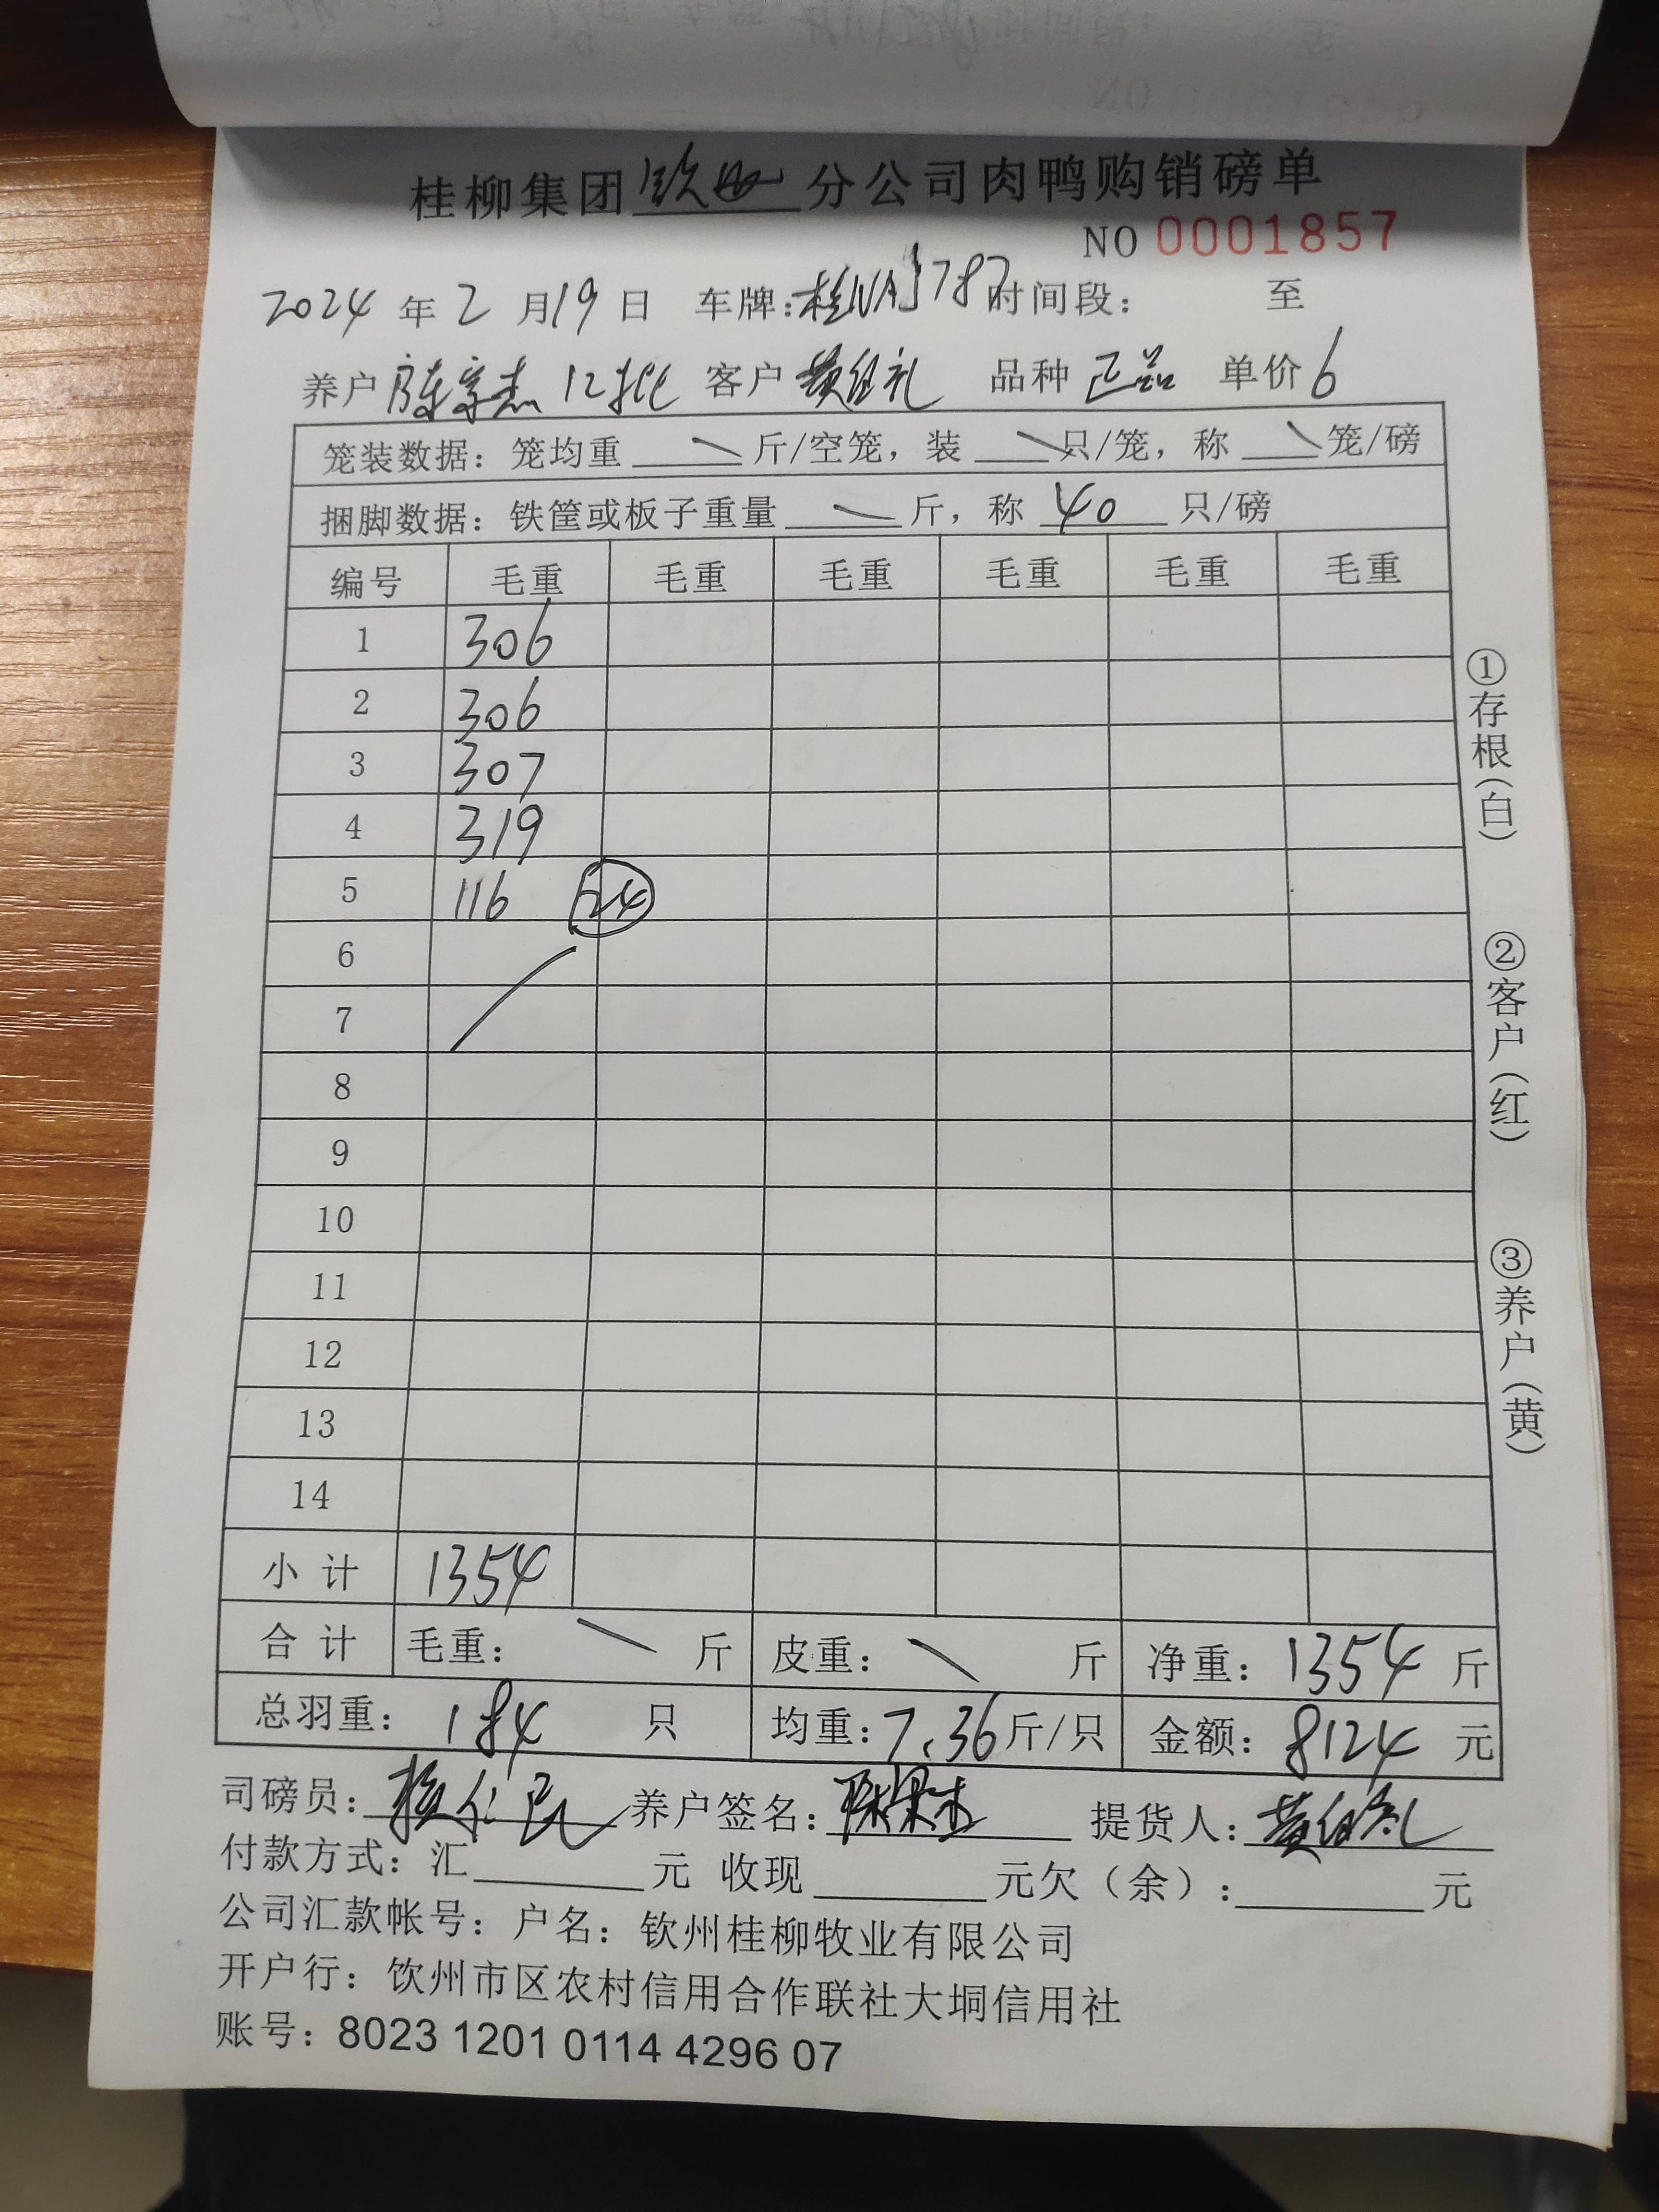 桂柳集团钦州分公司肉鸭购销磅单
NO 0001857
2024年2月19日 车牌:桂NAJ787 时间段: 至
养户 陈家杰 12批 客户 黄伯礼 品种 正品 单价 6
笼装数据: 笼均重 斤/空笼, 装 只/笼, 称 笼/磅
捆脚数据: 铁筐或板子重量 斤, 称 40 只/磅
编号 毛重 毛重 毛重 毛重 毛重 毛重
1 306
2 306
3 307
4 319
5 116 24
6
7
8
9
10
11
12
13
14
小计 1354
合计 毛重: 斤 皮重: 斤 净重: 1354 斤
总羽重: 184 只 均重: 7.36 斤/只 金额: 8124 元
司磅员: 养户签名: 提货人: 黄伯礼
付款方式: 汇 元 收现 元欠(余): 元
公司汇款帐号: 户名: 钦州桂柳牧业有限公司
开户行: 饮州市区农村信用合作联社大垌信用社
账号: 8023 1201 0114 4296 07
①存根(白)
②客户(红)
③养户(黄)